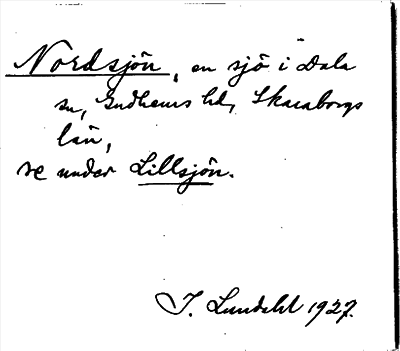 Nordsjön, en sjö i Dala
sn, Gudhems hd, Skaraborgs
län,
se under Lillsjön.
I. Lundahl 1927.